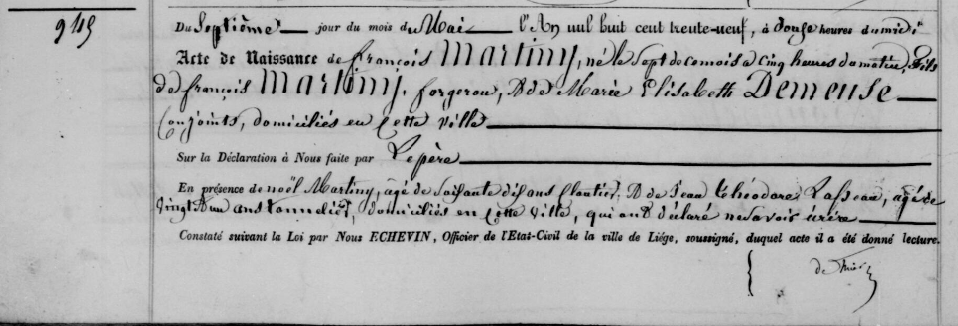 945
Du Septième jour du mois du Mai l'An mil huit cent trente-neuf, à Douze heures du midi
Acte de Naissance de françois Martiny, né le sept de ce mois à Cinq heures du matin, Fils
de françois Martiny, forgeron, & de Marie Elisabeth Demeuse
Conjoints, domiciliés en Cette Ville
Sur la Déclaration à Nous faite par Le père
En présence de noël Martiny, âgé de soixante dix ans, & de Jean théodore, âgé de
vingt un ans tonnelier, domiciliés en cette Ville, qui ont déclaré ne savoir écrire
Constaté suivant la Loi par Nous ECHEVIN, Officier de l'Etat-Civil de la ville de Liége, soussigné, duquel acte il a été donné lecture.